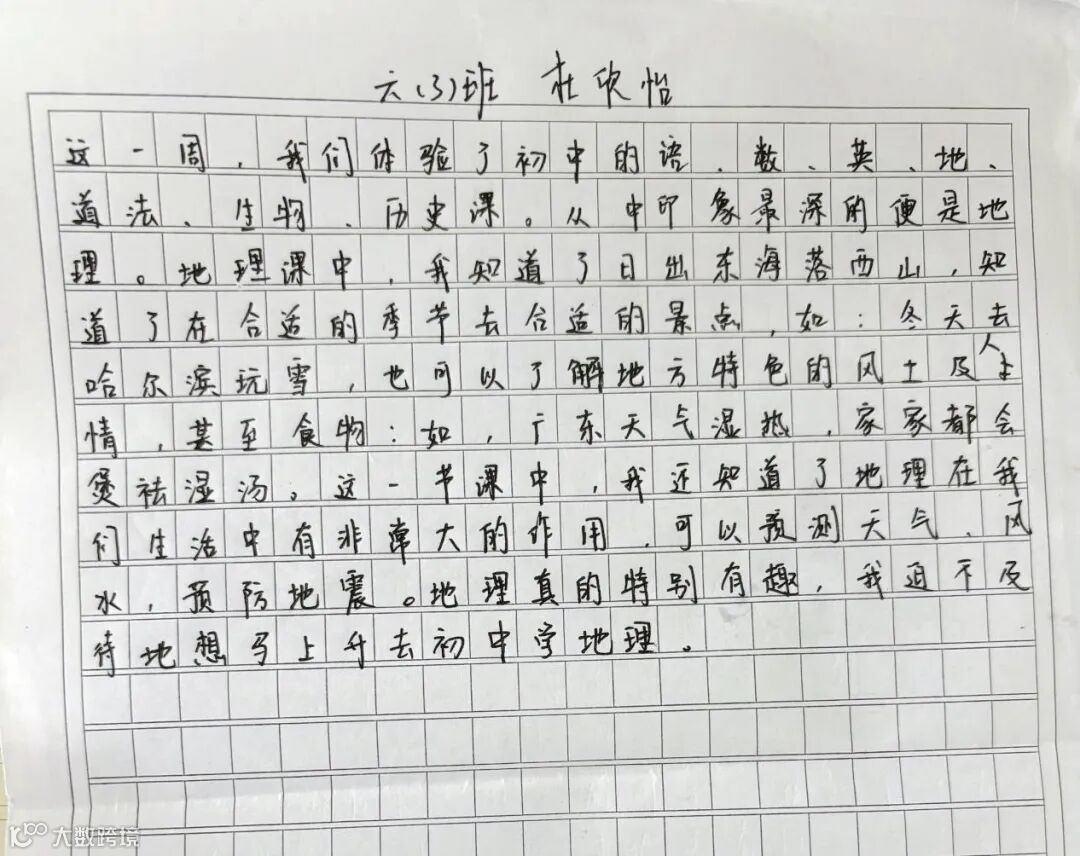 六(3)班 杜欣怡
这一周,我们体验了初中的语、数、英、地、
道法、生物、历史课。从中印象最深的便是地
理。地理课中,我知道了日出东海落西山,知
道了在合适的季节去合适的景点,如:冬天去
哈尔滨玩雪,也可以了解地方特色的风土及人土
情,甚至食物:如,广东天气湿热,家家都会
煲祛湿汤。这一节课中,我还知道了地理在我
们生活中有非常大的作用,可以预测天气、风
水,预防地震。地理真的特别有趣,我迫不及
待地想马上升去初中学地理。
大数跨境